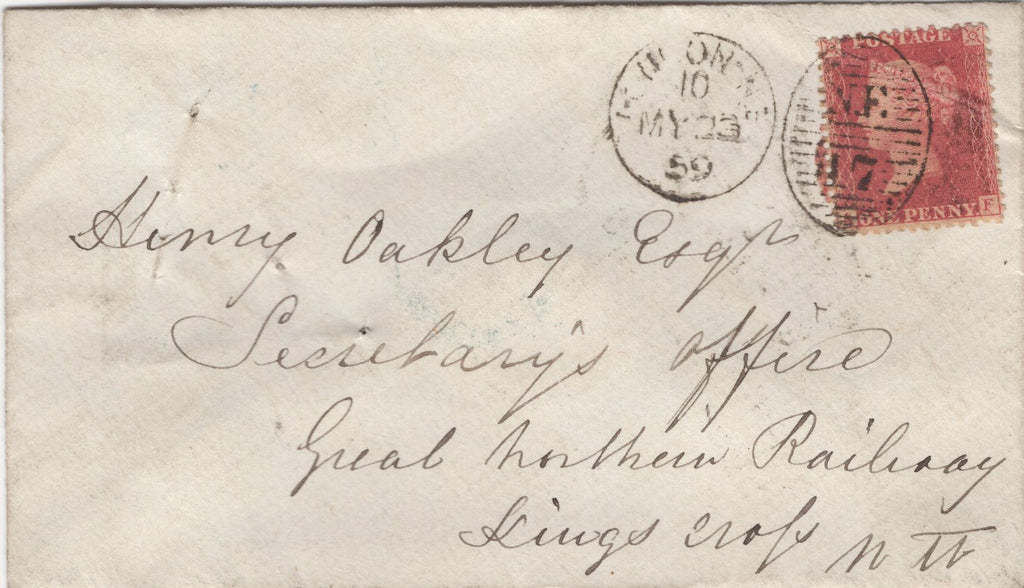 POSTAGE
LONDON-N.E
10
MY 23
59
N.E.
17
ONE PENNY. F
Henry Oakley Esqr
Secretary's Office
Great Northern Railway
Kings Cross
N W